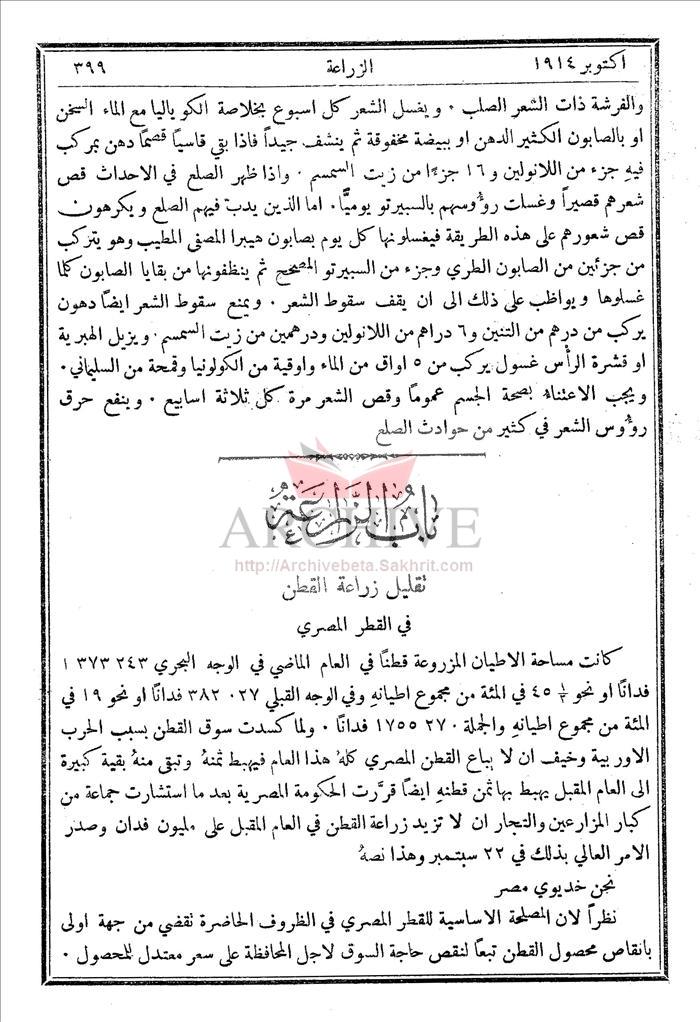 اكتوبر ١٩١٤ الزراعة ٣٩٩
والفرشة ذات الشعر الصلب . ويغسل الشعر كل اسبوع بخلاصة الكوياليا مع الماء السخن
او بالصابون الكثير الدهن او ببيضة مخفوقة ثم ينشف جيداً فاذا بقي قاسياً قصماً دهن بمركب
فيهِ جزء من اللانولين و ١٦ جزءا من زيت السمسم . واذا ظهر الصلع في الاحداث قص
شعرهم قصيراً وغسلت روءُوسهم بالسبيرتو يوميًّا . اما الذين يدب فيهم الصلع و يكرهون
قص شعورهم على هذه الطريقة فيغسلونها كل يوم بصابون هيبرا المصفى المطيب وهو يتركب
من جزئين من الصابون الطري وجزء من السبيرتو المصحح ثم ينظفونها من بقايا الصابون كلما
غسلوها ويواظب على ذلك الى ان يقف سقوط الشعر . ويمنع سقوط الشعر ايضاً دهون
يركب من درهم من التنين و٦ دراهم من اللانولين ودرهمين من زيت السمسم . ويزيل الهبرية
او قشرة الرأس غسول يركب من ٥ اواق من الماء واوقية من الكولونيا وقمحة من السليماني .
ويجب الاعتناء بصحة الجسم عموماً وقص الشعر مرة كل ثلاثة اسابيع . وينفع حرق
روءُوس الشعر في كثير من حوادث الصلع
باب الزراعة
ARCHIVE
http://Archivebeta.Sakhrit.com
تقليل زراعة القطن
في القطر المصري
كانت مساحة الاطيان المزروعة قطناً في العام الماضي في الوجه البحري ٢٤٣ ٣٧٣ ١
فداناً او نحو ½ ٤٥ في المئة من مجموع اطيانهِ وفي الوجه القبلي ٠٢٧ ٣٨٢ فداناً او نحو ١٩ في
المئة من مجموع اطيانهِ والجملة ٢٧٠ ٧٥٥ ١ فداناً . ولما كسدت سوق القطن بسبب الحرب
الاوربية وخيف ان لا يباع القطن المصري كلهُ هذا العام فيهبط ثمنهُ وتبقى منهُ بقية كبيرة
الى العام المقبل يهبط بها ثمن قطنهِ ايضاً قرَّرت الحكومة المصرية بعد ما استشارت جماعة من
كبار المزارعين والتجار ان لا تزيد زراعة القطن في العام المقبل على مليون فدان وصدر
الامر العالي بذلك في ٢٢ سبتمبر وهذا نصهُ
نحن خديوي مصر
نظراً لان المصلحة الاساسية للقطر المصري في الظروف الحاضرة تقضي من جهة اولى
بانقاص محصول القطن تبعاً لنقص حاجة السوق لاجل المحافظة على سعر معتدل للمحصول .